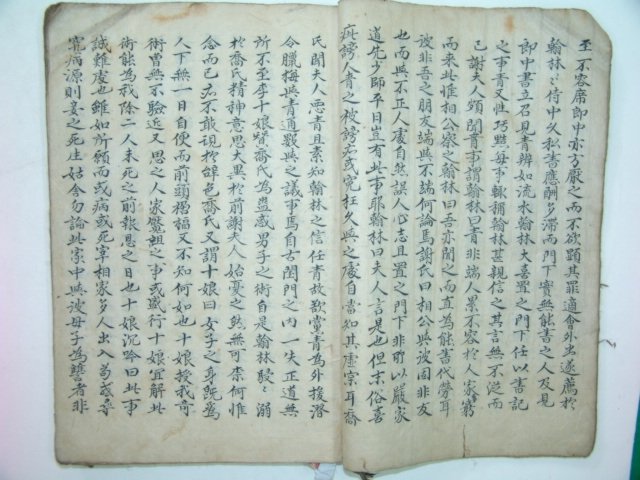 至不容席郎中亦方厭之而不欲顯其罪適會外出遂薦於
翰林翰林侍中久松書應酬多滯而門下實無能書之人及見
郎中書立召見青辨如流水翰林大喜置之門下任以書記
之事青又性巧黠每事輒稱翰林甚親信之其言無不從而
已謝夫人頗聞青事謂翰林曰青非端人累不容於人家窮
而來此惟相公察之翰林曰吾亦聞之而直為能書代勞耳
彼非吾之朋友端與不端何論焉謝氏曰相公與彼固非友
也而與不正人處自然誤人心志且置之門下非所以嚴家
道先少師平日豈有此事耶翰林曰夫人言是也但末俗喜
疵謗人青之被謗或冤枉久與之處自當知其虛宗耳喬
氏聞夫人惡青且素知翰林之信任青故欲黨青為外援潛
令臘梅與青通教與之議事焉自古閨門之內一失正道無
所不至李十娘督喬氏為蠱惑男子之術自是翰林駸駸溺
於喬氏精神意思大異於前謝夫人始憂之然無可奈何惟
念而已亦不敢現於辭色喬氏又謂十娘曰女子之身旣為
人下無一日自便而前頭禍福又不知何如也十娘授我奇
術曾無不驗近又思之人家魘魅之事或盛行十娘宜解此
術能為我除二人未死之前報恩之日也十娘沉吟曰此事
誠難處也雖如所願而或病或死宰相家多人出入若或尋
究病源則妾之死生姑舍勿論此家中與彼母子為讐者非